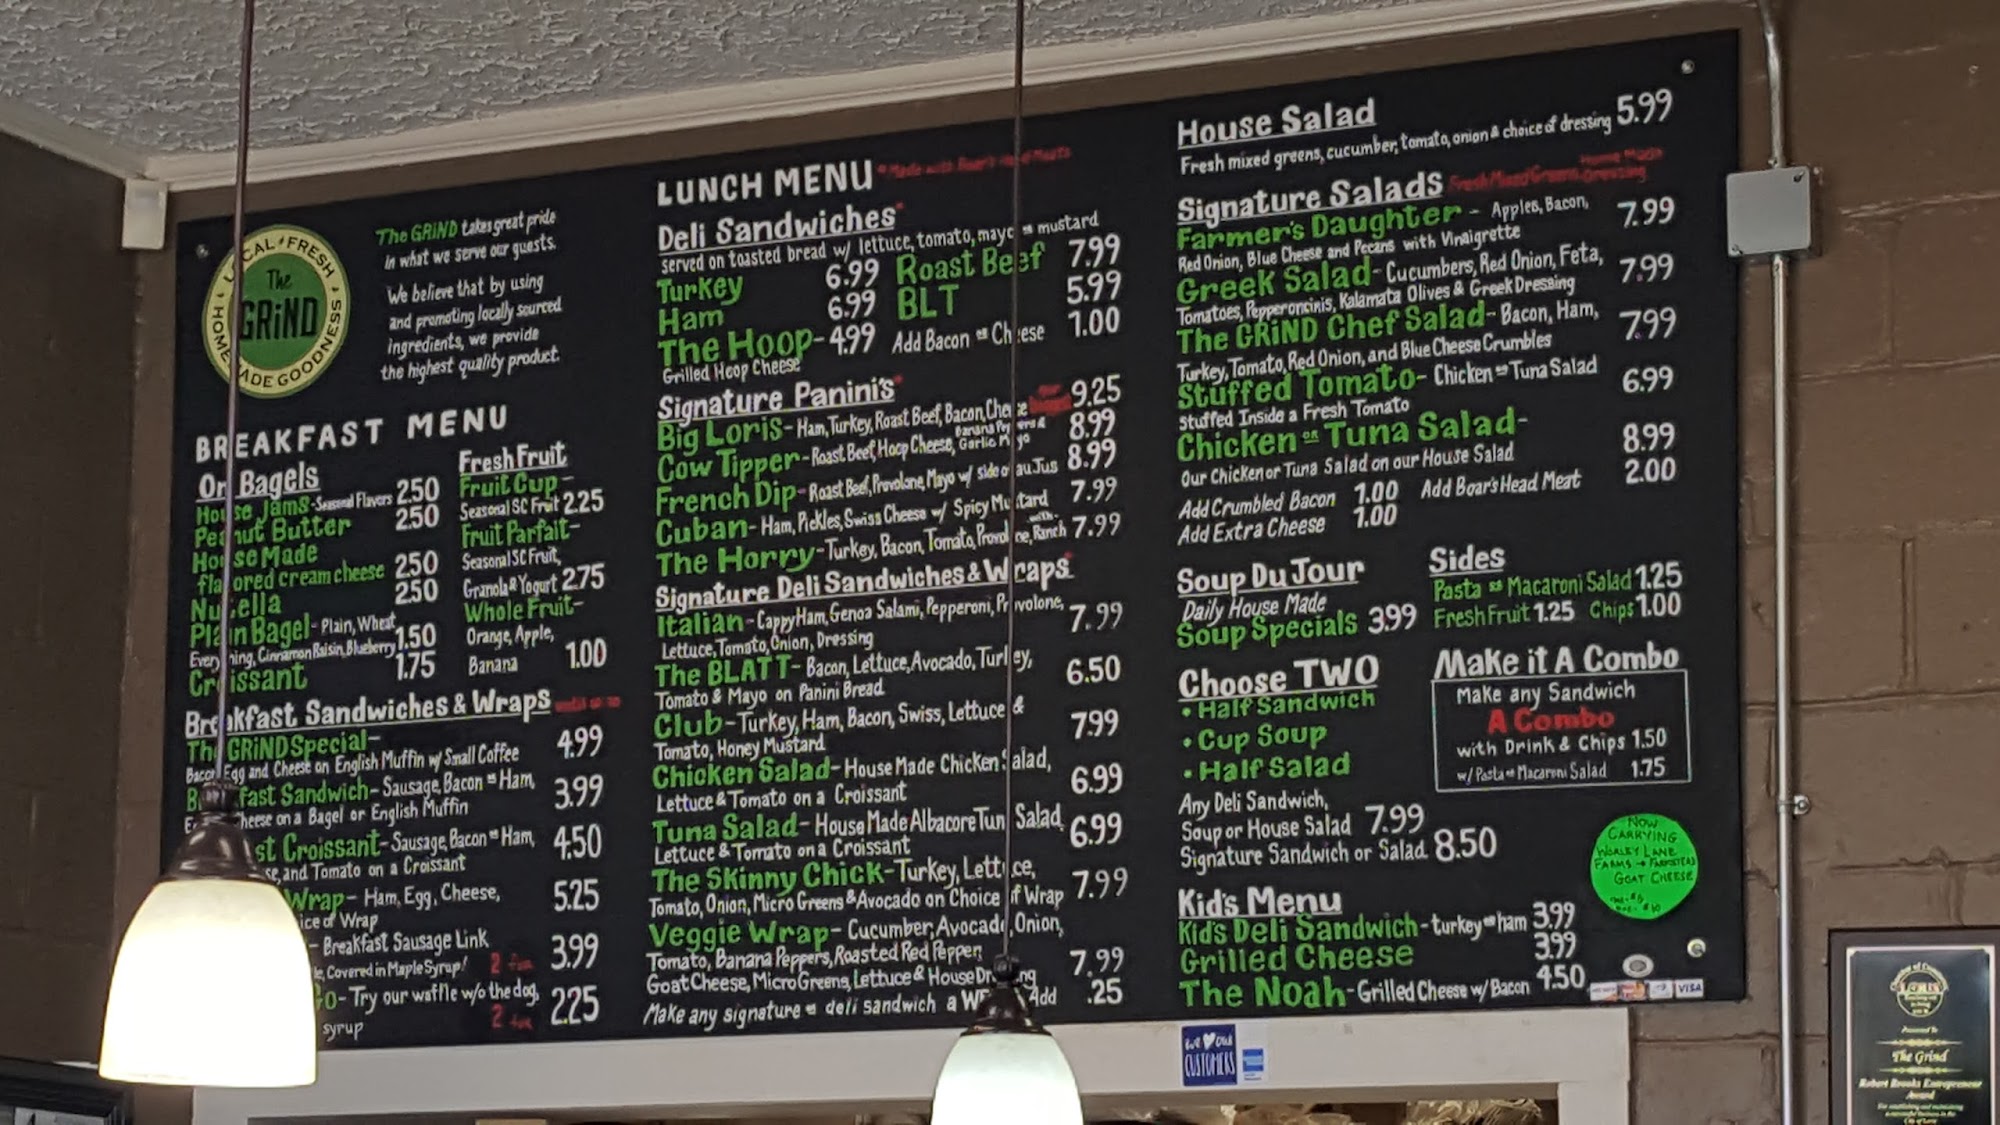 LOCAL FRESH
The
GRiND
HOMEMADE GOODNESS
The GRiND takes great pride
in what we serve our guests.
We believe that by using
and promoting locally sourced
ingredients, we provide
the highest quality product.
BREAKFAST MENU
On Bagels
House Jams-Seasonal Flavors 2.50
Peanut Butter 2.50
House Made
flavored cream cheese 2.50
Nutella 2.50
Plain Bagel- Plain, Wheat,
Everything, Cinnamon Raisin, Blueberry 1.50
Croissant 1.75
Fresh Fruit
Fruit Cup-
Seasonal SC Fruit 2.25
Fruit Parfait-
Seasonal SC Fruit,
Granola & Yogurt 2.75
Whole Fruit-
Orange, Apple,
Banana 1.00
Breakfast Sandwiches & Wraps
The GRiND Special-
Bacon, Egg and Cheese on English Muffin w/ Small Coffee 4.99
Breakfast Sandwich- Sausage, Bacon or Ham,
Cheese on a Bagel or English Muffin 3.99
st Croissant- Sausage, Bacon or Ham,
and Tomato on a Croissant 4.50
Wrap- Ham, Egg, Cheese,
of Wrap 5.25
- Breakfast Sausage Link
Covered in Maple Syrup! 2 for 3.99
- Try our waffle w/o the dog,
syrup 2 for 2.25
LUNCH MENU *Made with Boar's Head Meats
Deli Sandwiches*
served on toasted bread w/ lettuce, tomato, mayo or mustard
Turkey 6.99 Roast Beef 7.99
Ham 6.99 BLT 5.99
The Hoop- 4.99 Add Bacon or Cheese 1.00
Grilled Hoop Cheese
Signature Panini's*
Big Loris- Ham, Turkey, Roast Beef, Bacon, Cheese 9.25
Cow Tipper- Roast Beef, Hoop Cheese, Banana Peppers & Garlic Mayo 8.99
French Dip- Roast Beef, Provolone, Mayo w/ side of au Jus 8.99
Cuban- Ham, Pickles, Swiss Cheese w/ Spicy Mustard 7.99
The Horry- Turkey, Bacon, Tomato, Provolone, with Ranch 7.99
Signature Deli Sandwiches & Wraps*
Italian- Cappy Ham, Genoa Salami, Pepperoni, Provolone,
Lettuce, Tomato, Onion, Dressing 7.99
The BLATT- Bacon, Lettuce, Avocado, Turkey,
Tomato & Mayo on Panini Bread 6.50
Club- Turkey, Ham, Bacon, Swiss, Lettuce &
Tomato, Honey Mustard 7.99
Chicken Salad- House Made Chicken Salad,
Lettuce & Tomato on a Croissant 6.99
Tuna Salad- House Made Albacore Tuna Salad,
Lettuce & Tomato on a Croissant 6.99
The Skinny Chick- Turkey, Lettuce,
Tomato, Onion, Micro Greens & Avocado on Choice of Wrap 7.99
Veggie Wrap- Cucumber, Avocado, Onion,
Tomato, Banana Peppers, Roasted Red Pepper,
Goat Cheese, Micro Greens, Lettuce & House Dressing 7.99
Make any signature or deli sandwich a Add .25
House Salad
Fresh mixed greens, cucumber, tomato, onion & choice of dressing 5.99
Signature Salads Fresh Mixed Greens Home Made Dressing
Farmer's Daughter - Apples, Bacon,
Red Onion, Blue Cheese and Pecans with Vinaigrette 7.99
Greek Salad- Cucumbers, Red Onion, Feta,
Tomatoes, Pepperoncinis, Kalamata Olives & Greek Dressing 7.99
The GRiND Chef Salad- Bacon, Ham,
Turkey, Tomato, Red Onion, and Blue Cheese Crumbles 7.99
Stuffed Tomato- Chicken or Tuna Salad
Stuffed Inside a Fresh Tomato 6.99
Chicken or Tuna Salad-
Our Chicken or Tuna Salad on our House Salad 8.99
Add Crumbled Bacon 1.00 Add Boar's Head Meat 2.00
Add Extra Cheese 1.00
Soup Du Jour
Daily House Made
Soup Specials 3.99
Sides
Pasta or Macaroni Salad 1.25
Fresh Fruit 1.25 Chips 1.00
Choose TWO
• Half Sandwich
• Cup Soup
• Half Salad
Any Deli Sandwich,
Soup or House Salad 7.99
Signature Sandwich or Salad 8.50
Make it A Combo
Make any Sandwich
A Combo
with Drink & Chips 1.50
w/ Pasta or Macaroni Salad 1.75
NOW
CARRYING
WORLEY LANE
FARMS → FARMSTEAD
GOAT CHEESE
Kid's Menu
Kid's Deli Sandwich- turkey or ham 3.99
Grilled Cheese 3.99
The Noah- Grilled Cheese w/ Bacon 4.50
VISA
WE OUR
CUSTOMERS
LORIS
Presented To
The Grind
Robert Brooks Entrepreneur
Award